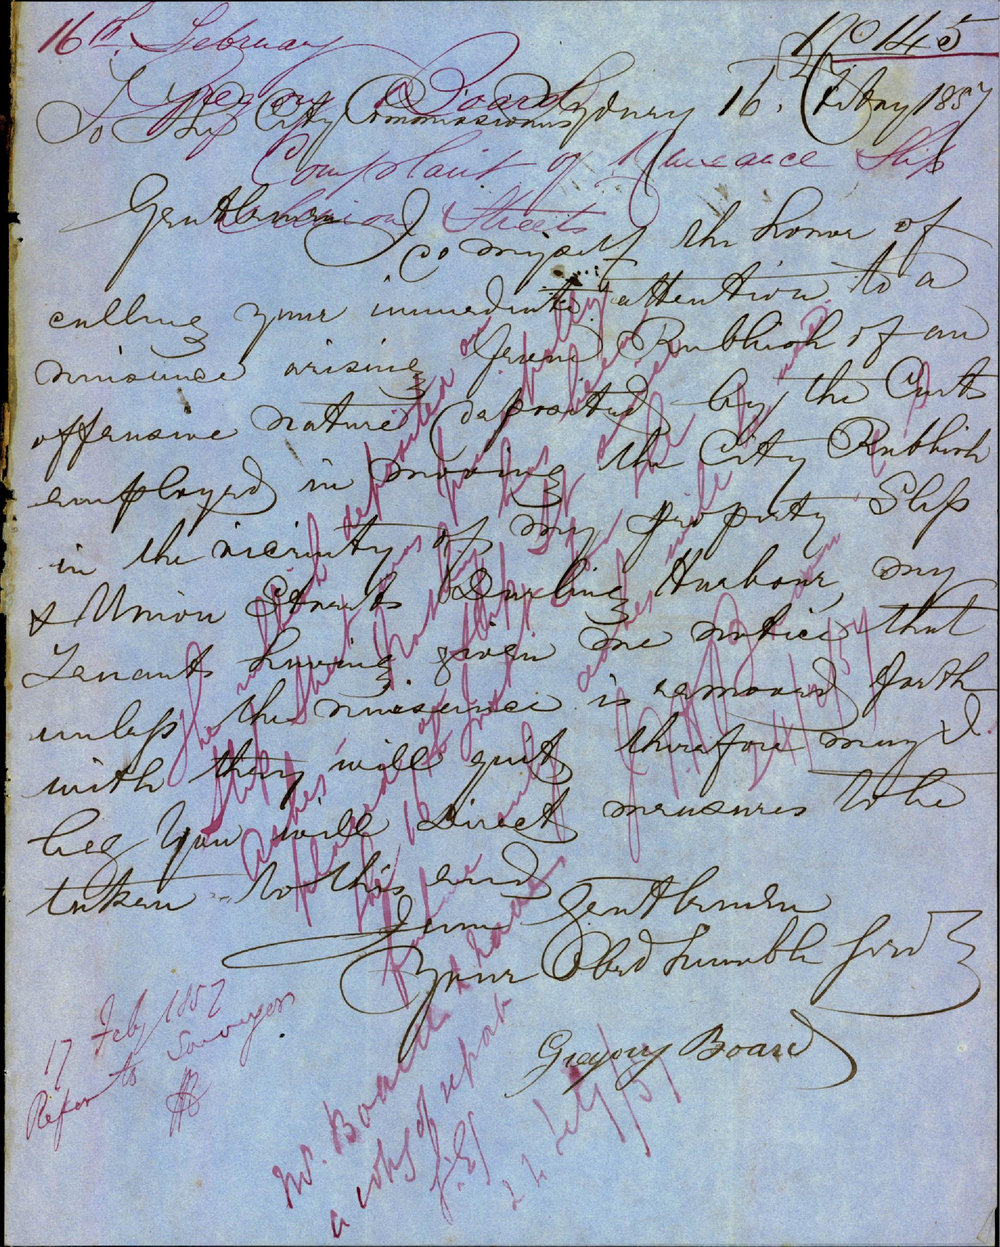 16th. February
No 145
Gregory Board
Sydney 16. Feby 1857
To The City Commissioners
Complaint of Nuisance Slip
& Union Streets
Gentlemen
I do myself the honor of
calling your immediate attention to a
nuisance arising from Rubbish of an
offensive nature deposited by the Carts
employed in moving the City Rubbish
in the vicinity of my property Slip
& Union Streets Darling Harbour, my
Tenants having given me notice that
unless the nuisance is removed forth
with they will quit therefore may I
beg You will direct measures to be
taken to this end
I am Gentlemen
Your Obed humble Servt
Gregory Board
The rubbish deposited in
Slip Street was principally
ashes, nothing has been
placed
24/2/57
17 Feby 1857
Refer to Surveyor
Mr. Board to have
a copy of report
24 Feby/57